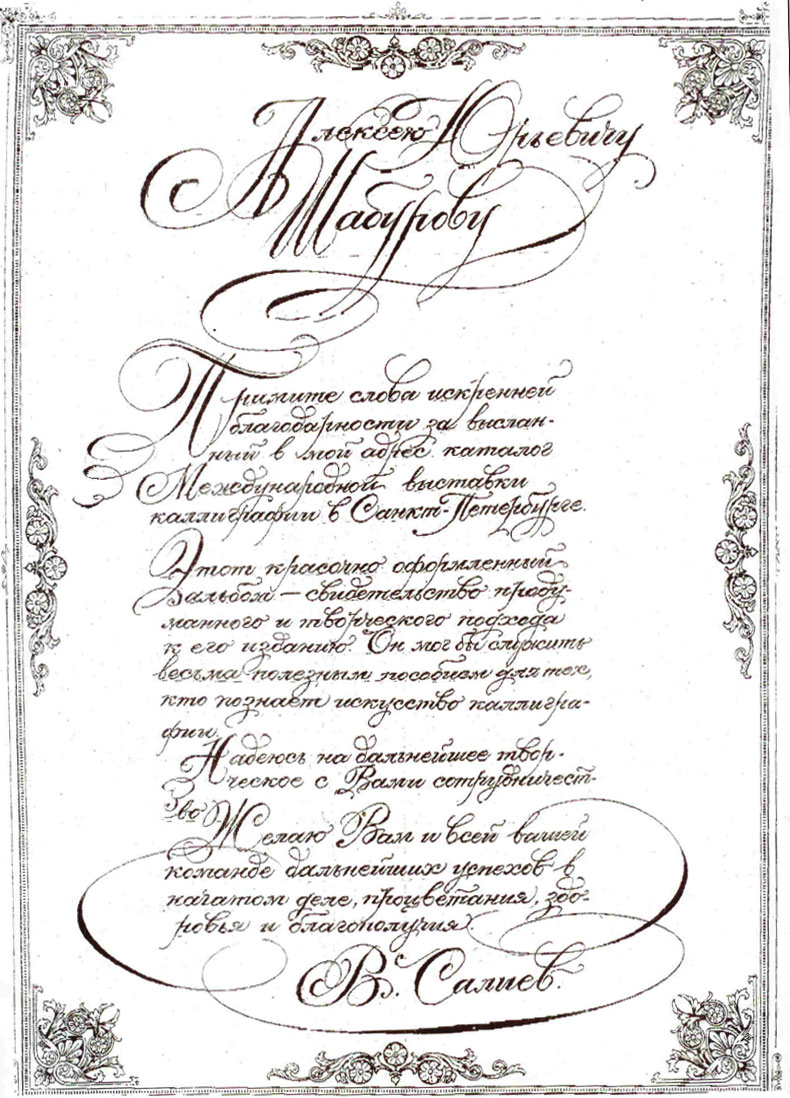 Алексею Юрьевичу
Шабурову
Примите слова искренней
благодарности за выслан-
ный в мой адрес каталог
Международной выставки
каллиграфии в Санкт-Петербурге.
Этот красочно оформленный
альбом — свидетельство проду-
манного и творческого подхода
к его изданию. Он мог бы служить
весьма полезным пособием для тех,
кто познает искусство каллигра-
фии.
Надеюсь на дальнейшее твор-
ческое с Вами сотрудничест-
во
Желаю Вам и всей вашей
команде дальнейших успехов в
начатом деле, процветания, здо-
ровья и благополучия.
Салиев.